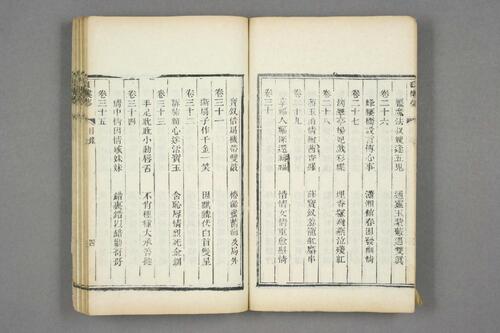 魘魔法叔嫂逢五鬼 通靈玉蒙蔽遇雙眞
卷二十六
蜂腰橋設言傳心事 瀟湘館春困發幽情
卷二十七
滴翠亭楊妃戲彩蝶 埋香冢飛燕泣殘紅
卷二十八
蔣玉函情贈茜香羅 薛寶釵羞籠紅麝串
卷二十九
享福人福深還禱福 惜情女情重愈斟情
卷三十
寶釵借扇機帶雙敲 椿齡畫薔痴及局外
卷三十一
撕扇子作千金一笑 因麒麟伏白首雙星
卷三十二
訴肺腑心迷活寶玉 含恥辱情烈死金釧
卷三十三
手足眈眈小動唇舌 不肖種種大承笞撻
卷三十四
情中情因情感妹妹 錯裏錯以錯勸哥哥
卷三十五
目錄 四